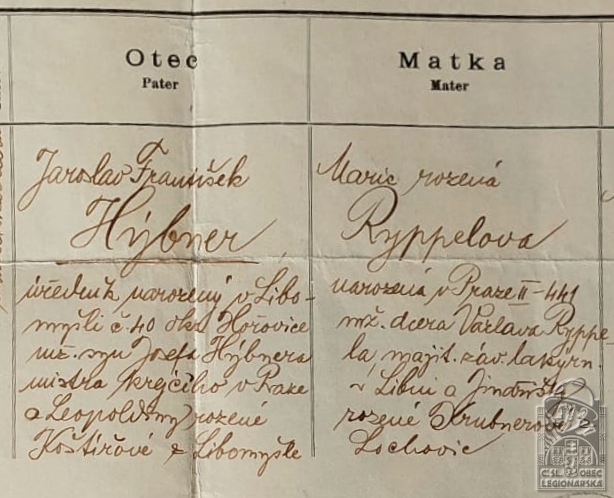 Otec
Pater
Jaroslav František
Hýbner
úředník narozený v Libo-
myšli č. 40 okr. Hořovice
mž. syn Josefa Hýbnera
mistra krejčího v Praze
a Leopoldiny rozené
Koštířové z Libomyšle
Matka
Mater
Marie rozená
Ryppelova
narozená v Praze II-441
mž. dcera Václava Ryppe-
la majit. záv. lakýrn.
v Libni a Jindřišky
rozené Trubnerové z
Lochovic
ČSL. OBEC
LEGIONÁŘSKÁ